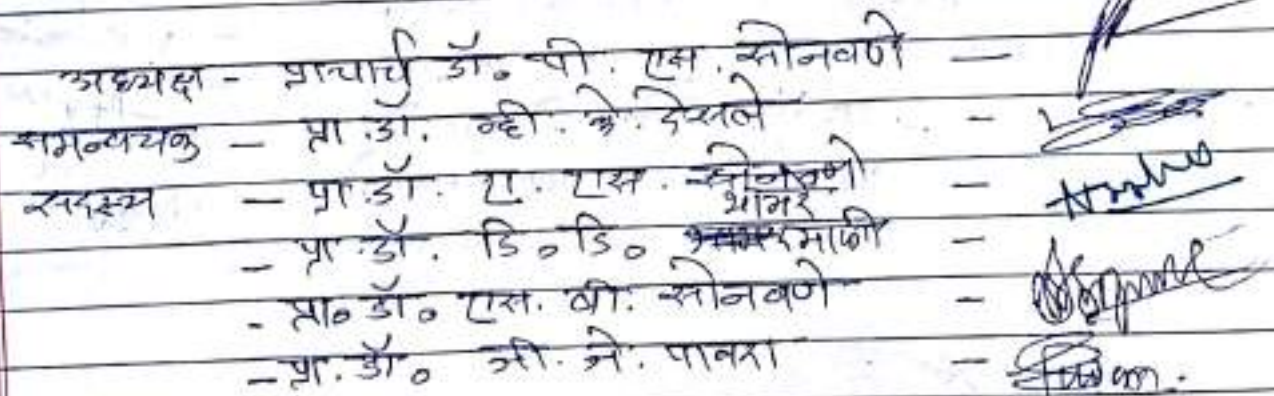 अध्यक्ष - प्राचार्य डॉ. पी. एस. सोनवणे -
समन्वयक - प्रा. डॉ. व्ही. के. देसले -
सदस्य - प्रा. डॉ. ए. एस. सोनवणे -
भामरे
- प्रा. डॉ. डि. डि. माळी -
- प्रा. डॉ. एस. बी. सोनवणे -
- प्रा. डॉ. जी. जे. पावरा -